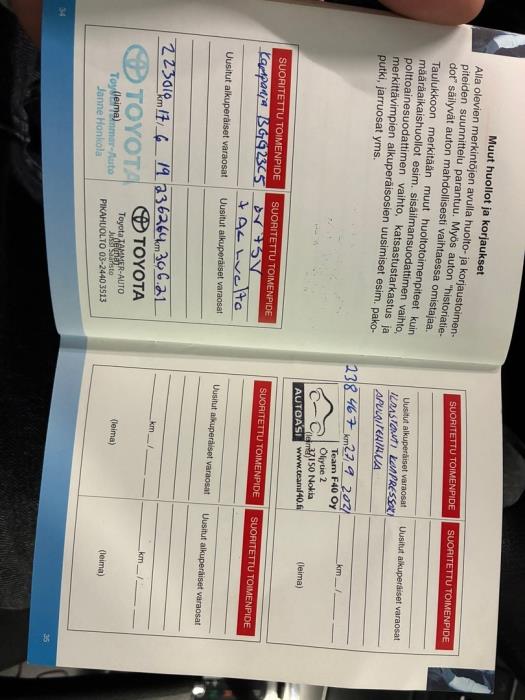 Muut huollot ja korjaukset
Alla olevien merkintöjen avulla huolto- ja korjaustoimen-
piteiden suunnittelu parantuu. Myös auton "historiatie-
dot" säilyvät auton mahdollisesti vaihtaessa omistajaa.
Taulukkoon merkitään muut huoltotoimenpiteet kuin
määräaikaishuollot esim. sisäilmansuodattimen vaihto,
polttoainesuodattimen vaihto, katsastustarkastus ja
merkittävimpien alkuperäisosien uusimiset esim. pako-
putki, jarruosat yms.
SUORITETTU TOIMENPIDE
Kampanja
Uusitut alkuperäiset varaosat
223010 km 17. 6 19
(leima)
TOYOTA
Toyota Tammer-Auto
Janne Honkola
SUORITETTU TOIMENPIDE
Uusitut alkuperäiset varaosat
236264 km 30.6.21
TOYOTA
Toyota TAMMER-AUTO
PIKAHUOLTO 03-2440 3513
34
SUORITETTU TOIMENPIDE
Uusitut alkuperäiset varaosat
ILMASTOINTI KOMPRESSORI
APULAITEHIHNA
238 467 km 27.9 2021
Team F40 Oy
Öljytie 2
37150 Nokia
AUTOASI www.teamf40.fi
SUORITETTU TOIMENPIDE
Uusitut alkuperäiset varaosat
km / 
(leima)
SUORITETTU TOIMENPIDE
Uusitut alkuperäiset varaosat
km / 
(leima)
SUORITETTU TOIMENPIDE
Uusitut alkuperäiset varaosat
km / 
(leima)
35